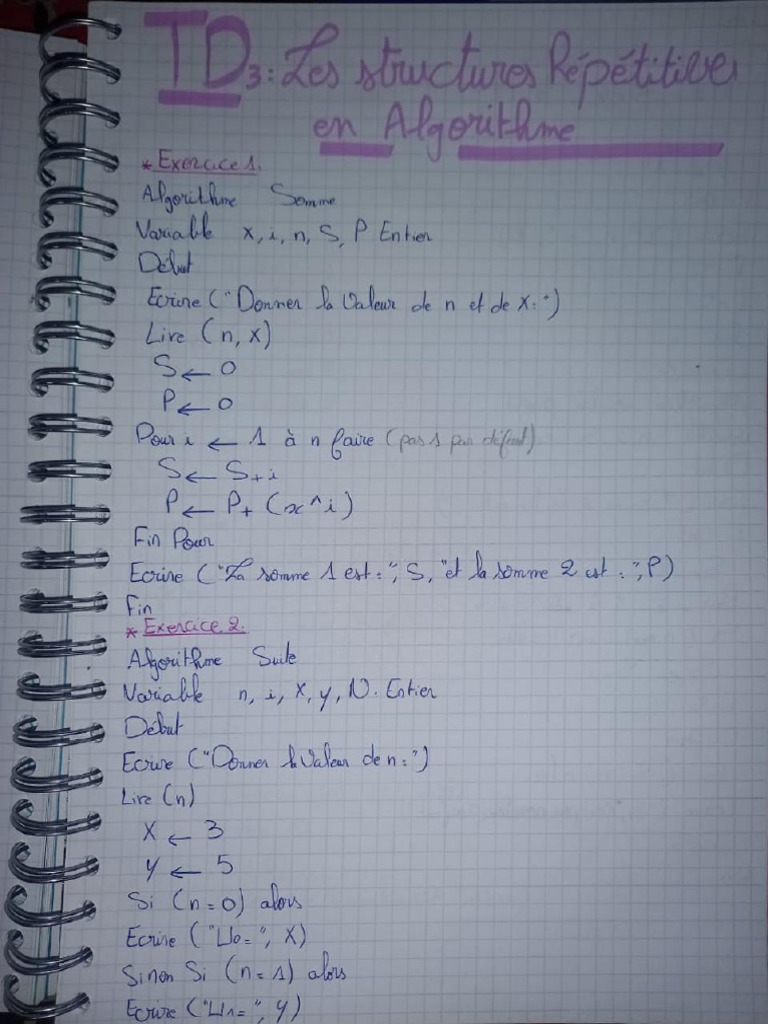 TD3: Les structures Répétitives
en Algorithme
* Exercice 1.
Algorithme Somme
Variable x, i, n, S, P Entier
Début
Ecrire ("Donner la Valeur de n et de x:")
Lire (n, x)
S ← 0
P ← 0
Pour i ← 1 à n faire (pas 1 par défaut)
S ← S + i
P ← P + (x^i)
Fin Pour
Ecrire ("La somme 1 est:", S, "et la somme 2 est:", P)
Fin
* Exercice 2.
Algorithme Suite
Variable n, i, X, y, N. Entier
Début
Ecrire ("Donner la Valeur de n:")
Lire (n)
X ← 3
y ← 5
Si (n=0) alors
Ecrire ("U0=", X)
Sinon Si (n=1) alors
Ecrire ("U1=", y)